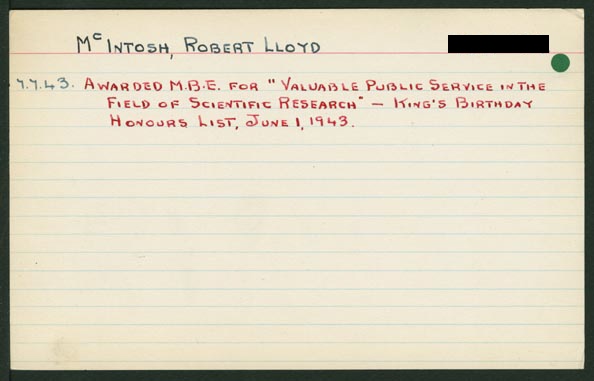 Mc INTOSH, ROBERT LLOYD
7.7.43. AWARDED M.B.E. FOR "VALUABLE PUBLIC SERVICE IN THE
FIELD OF SCIENTIFIC RESEARCH" - KING'S BIRTHDAY
HONOURS LIST, JUNE 1, 1943.